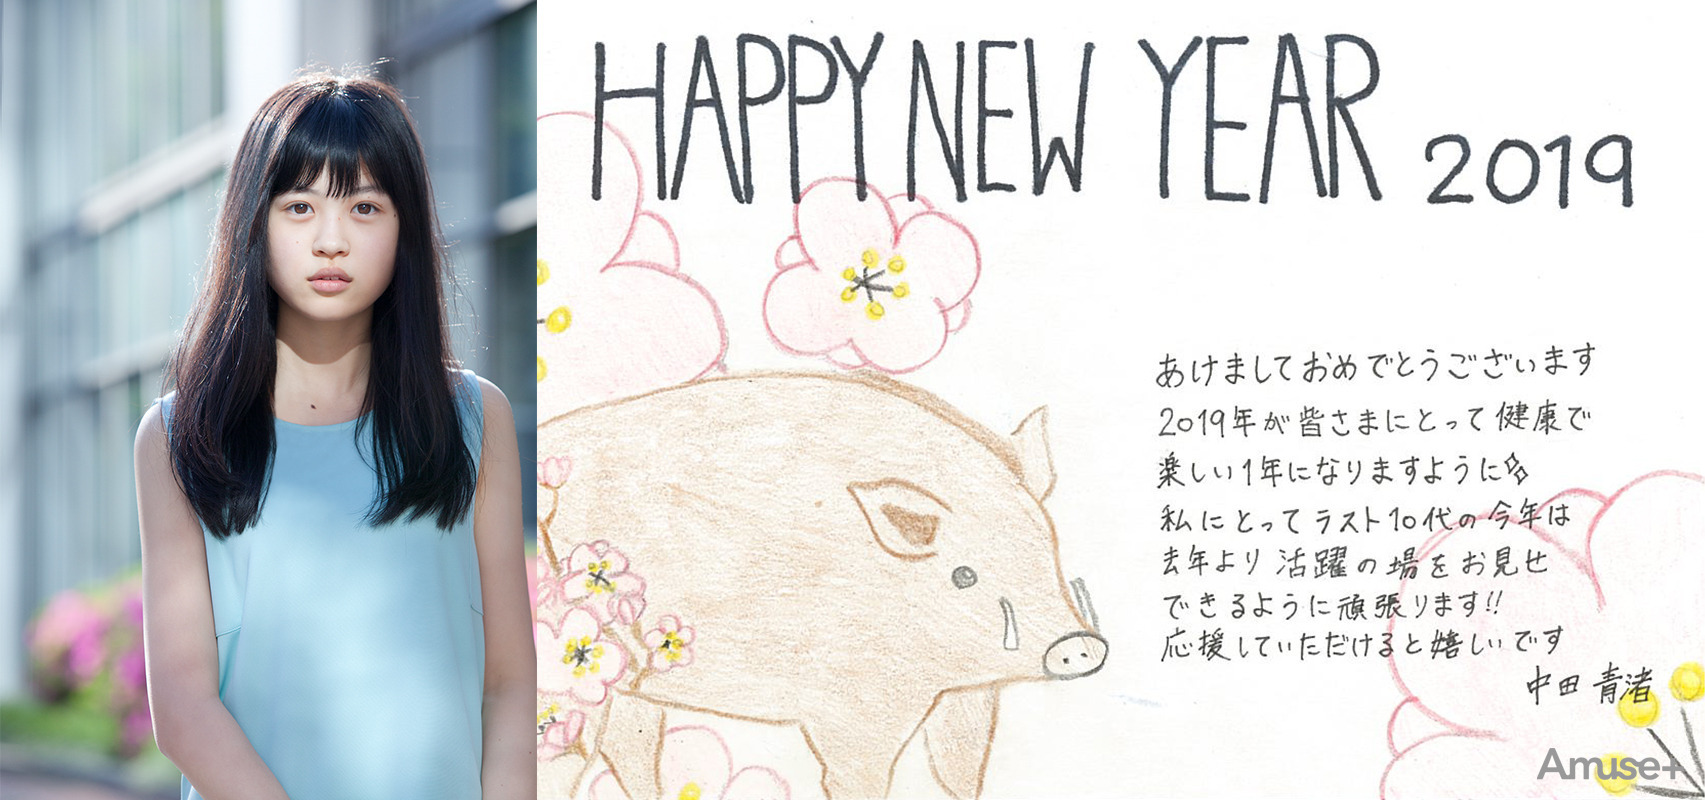 HAPPY NEW YEAR 2019
あけましておめでとうございます
2019年が皆さまにとって健康で
楽しい1年になりますように
私にとってラスト10代の今年は
去年より活躍の場をお見せ
できるように頑張ります!!
応援していただけると嬉しいです
中田青渚
Amuse+